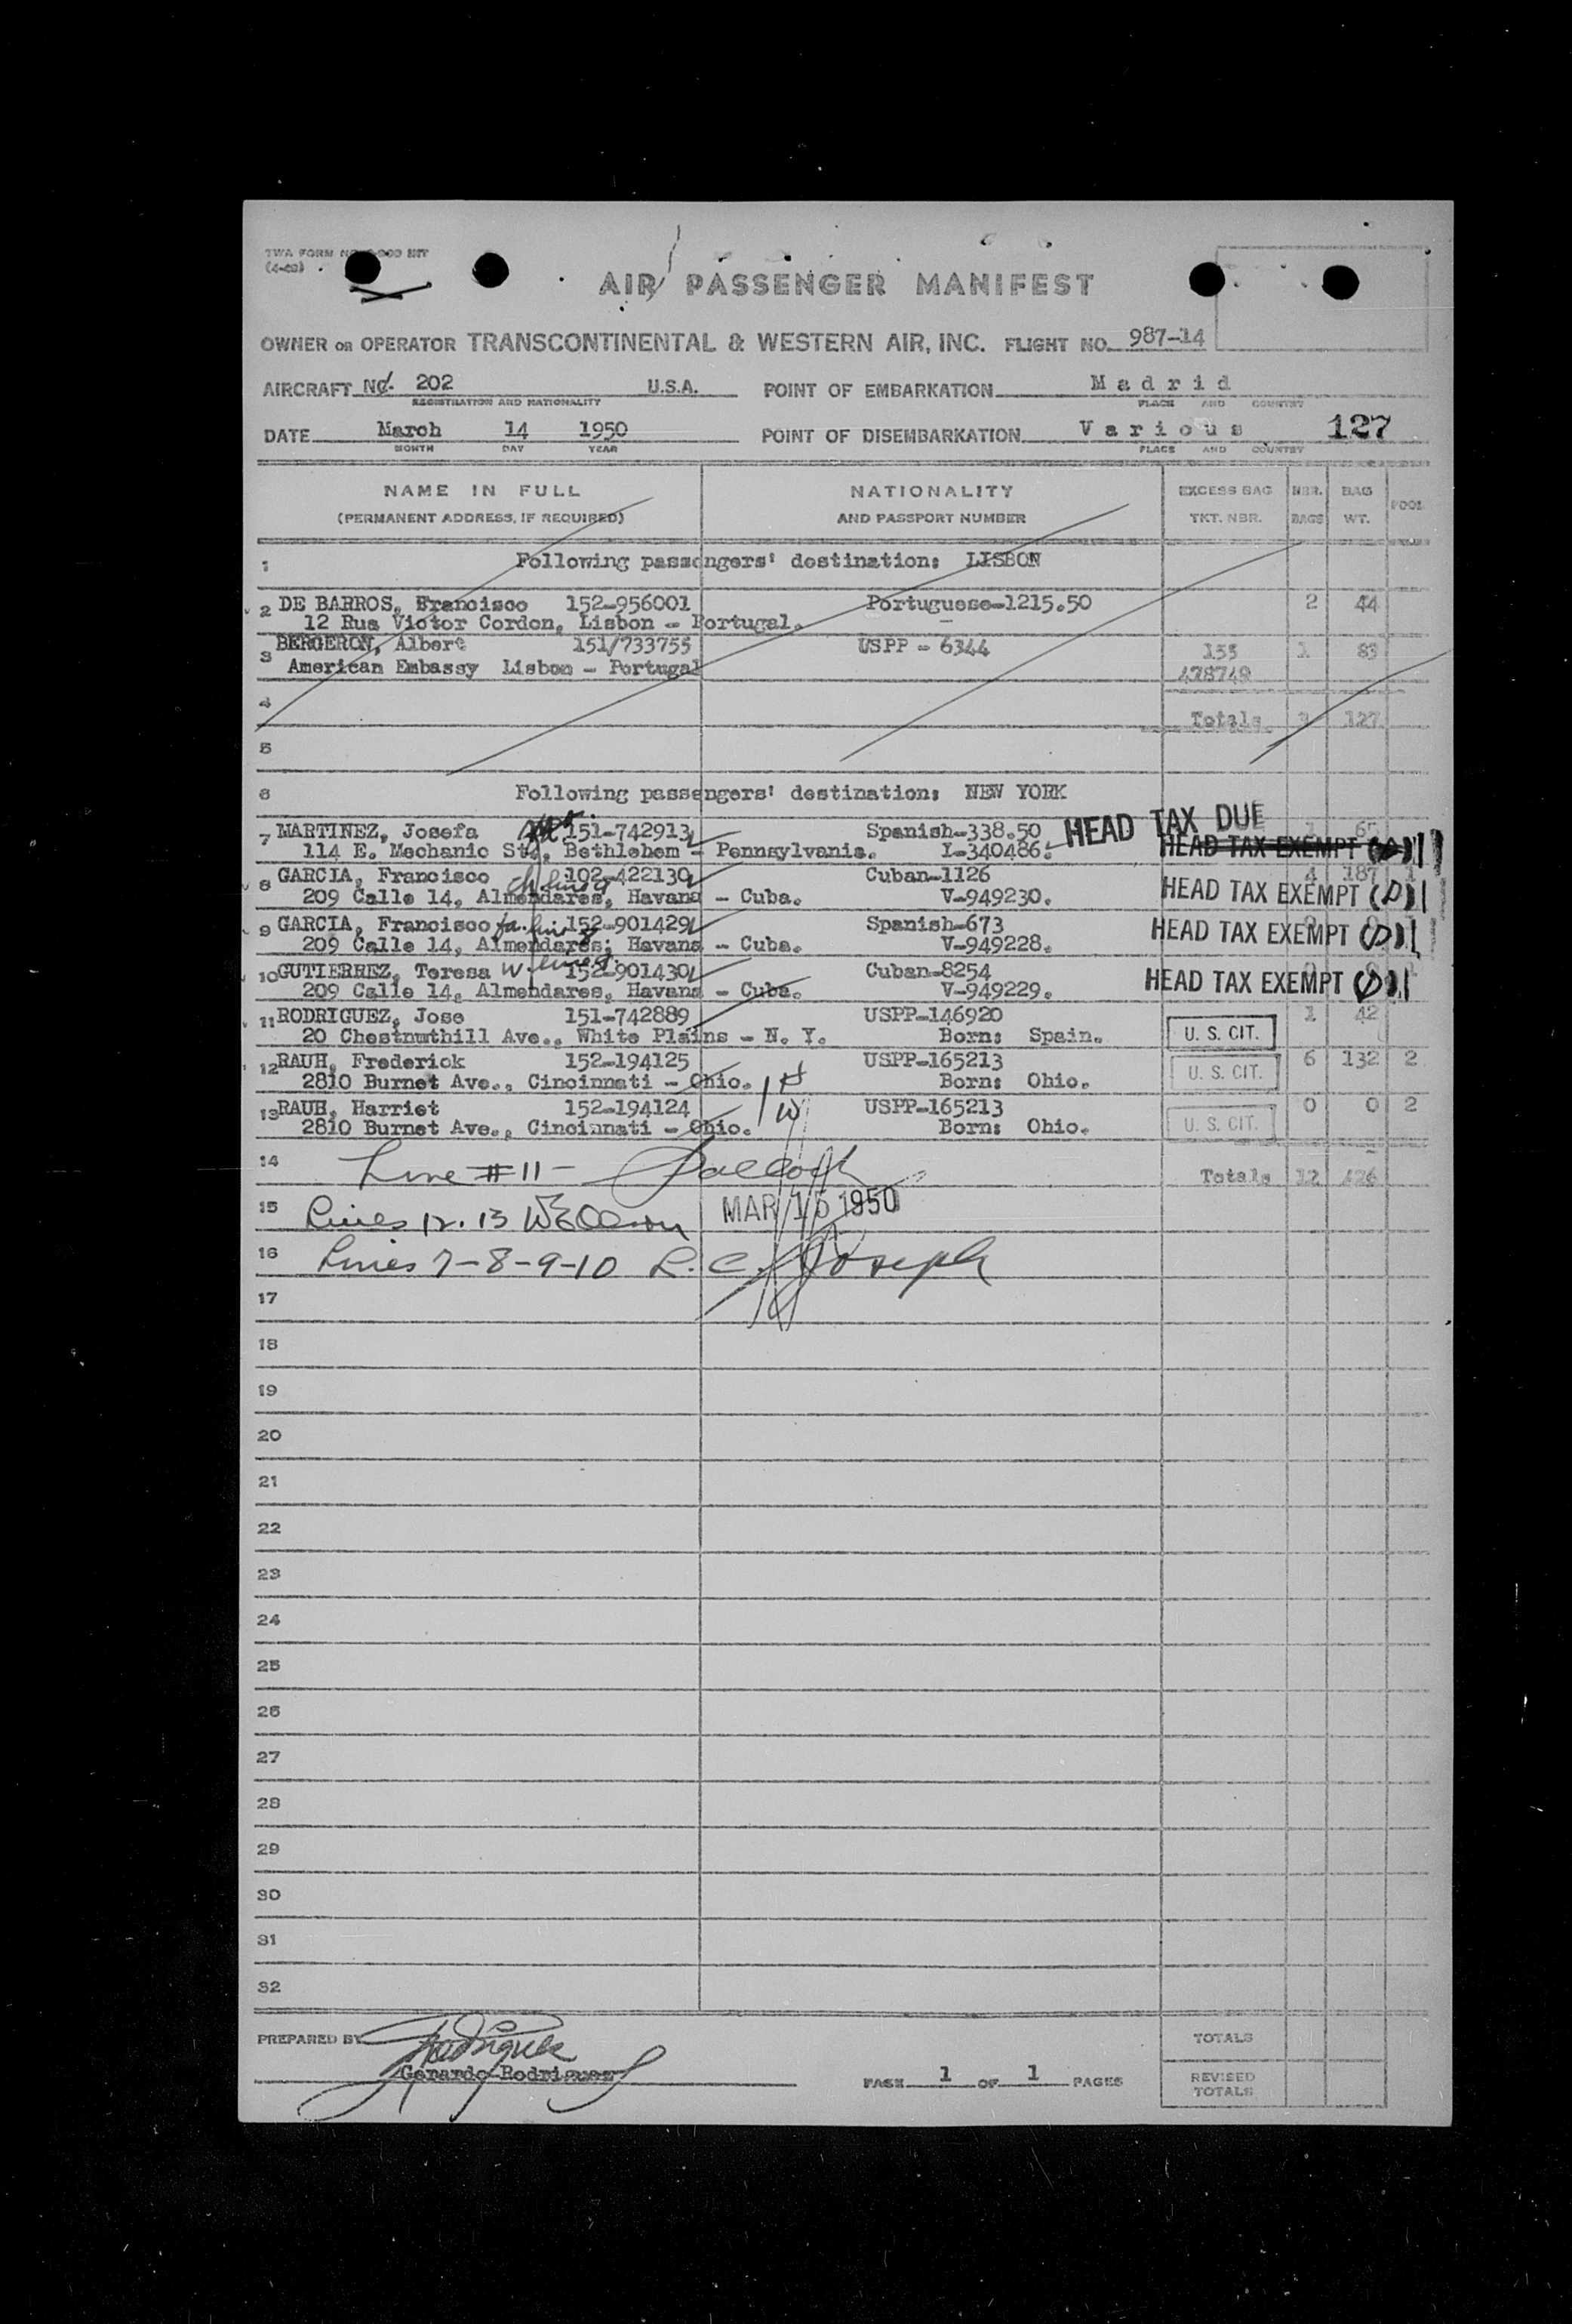 TWA FORM
AIR PASSENGER MANIFEST
OWNER OR OPERATOR TRANSCONTINENTAL & WESTERN AIR, INC. FLIGHT NO. 987-14
AIRCRAFT NO. 202 U.S.A. POINT OF EMBARKATION Madrid
REGISTRATION AND NATIONALITY PLACE AND COUNTRY
DATE March 14 1950 POINT OF DISEMBARKATION Various 127
MONTH DAY YEAR PLACE AND COUNTRY
NAME IN FULL NATIONALITY EXCESS BAG NBR. BAG POOL
(PERMANENT ADDRESS, IF REQUIRED) AND PASSPORT NUMBER TKT. NBR. BAGS WT.
1 Following passengers' destination: LISBON
2 DE BARROS, Francisco 152-956001 Portuguese-1215.50 2 44
12 Rua Victor Cordon, Lisbon - Portugal.
3 BERGERON, Albert 151/733755 USPP - 6344 155 1 83
American Embassy Lisbon - Portugal 478749
4 Totals 3 127
5
6 Following passengers' destination: NEW YORK
7 MARTINEZ, Josefa 151-742913 Spanish-338.50 HEAD TAX DUE
114 E. Mechanic Std, Bethlehem - Pennsylvania. I-340486. HEAD TAX EXEMPT
8 GARCIA, Francisco ch line 9 102-422130 Cuban-1126 4 187 1
209 Calle 14, Almendares, Havana - Cuba. V-949230. HEAD TAX EXEMPT
9 GARCIA, Francisco fa. line 8 152-901429 Spanish-673
209 Calle 14, Almendares; Havana - Cuba. V-949228. HEAD TAX EXEMPT
10 GUTIERREZ, Teresa W line 9 152-901430 Cuban-8254
209 Calle 14, Almendares, Havana - Cuba. V-949229. HEAD TAX EXEMPT
11 RODRIGUEZ, Jose 151-742889 USPP-146920 1 42
20 Chestnuthill Ave., White Plains - N. Y. Born: Spain. U. S. CIT.
12 RAUH, Frederick 152-194125 USPP-165213 6 132 2
2810 Burnet Ave., Cincinnati - Ohio. Born: Ohio. U. S. CIT.
13 RAUH, Harriet 152-194124 USPP-165213 0 0 2
2810 Burnet Ave., Cincinnati - Ohio. W Born: Ohio. U. S. CIT.
14 Line #11 - Totals 12 426
15 Lines 12. 13 MAR 15 1950
16 Lines 7-8-9-10 L. C. Joseph
17
18
19
20
21
22
23
24
25
26
27
28
29
30
31
32
PREPARED BY Rodriguez TOTALS
Gerardo Rodriguez PAGE 1 OF 1 PAGES REVISED
TOTALS